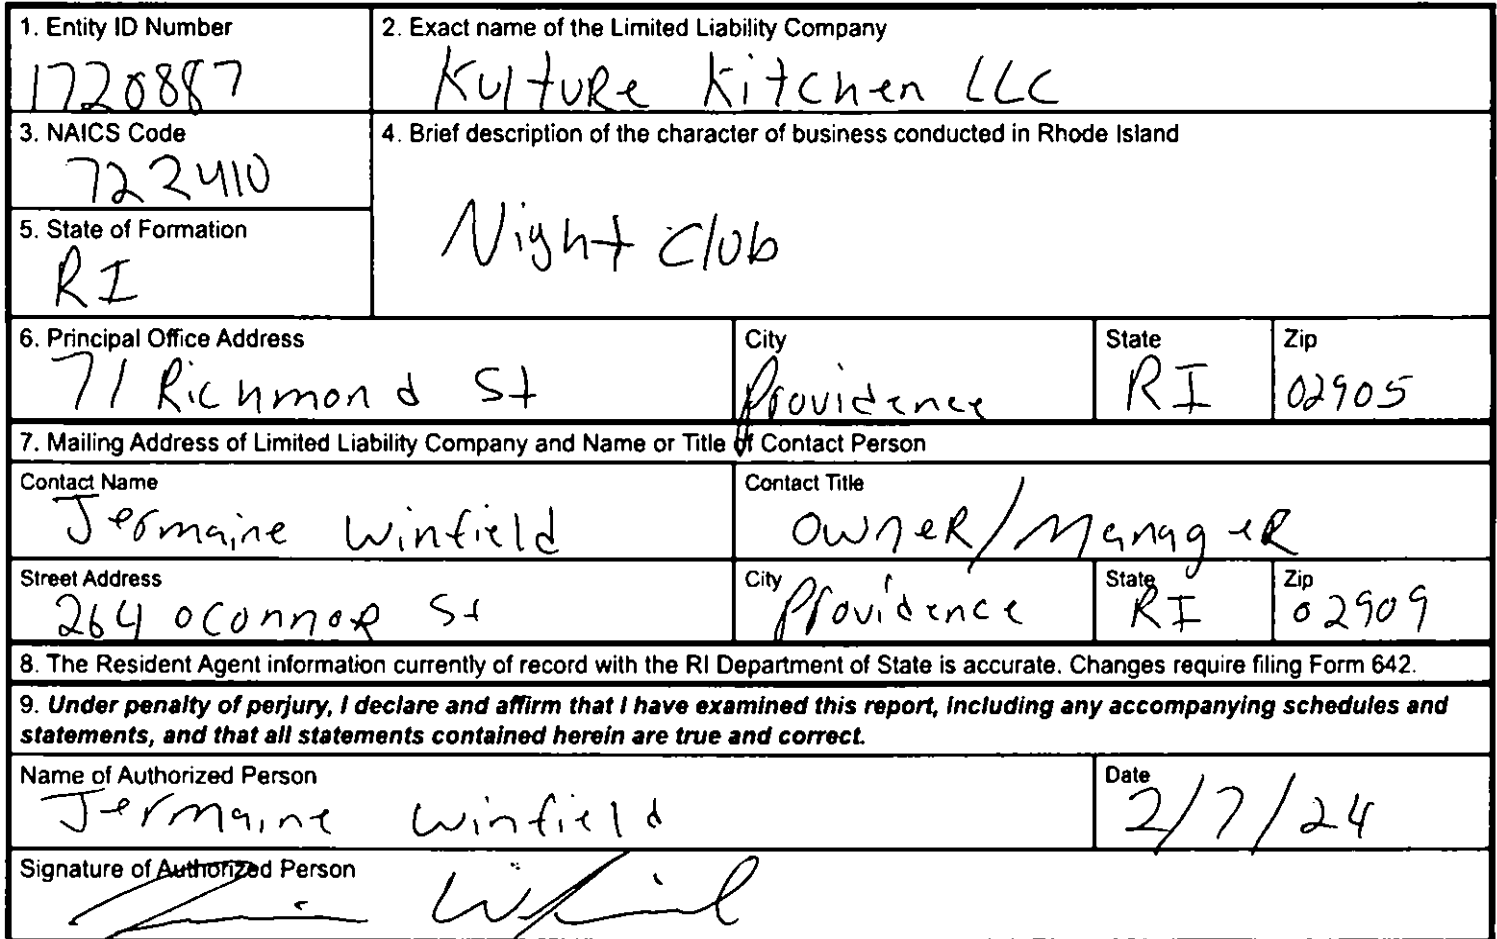 1. Entity ID Number
1720887
2. Exact name of the Limited Liability Company
Kulture Kitchen LLC
3. NAICS Code
722410
4. Brief description of the character of business conducted in Rhode Island
Night Club
5. State of Formation
RI
6. Principal Office Address
71 Richmond St
City
Providence
State
RI
Zip
02905
7. Mailing Address of Limited Liability Company and Name or Title of Contact Person
Contact Name
Jermaine Winfield
Contact Title
owneR/ManageR
Street Address
264 oconnoR St
City
Providence
State
RI
Zip
02909
8. The Resident Agent information currently of record with the RI Department of State is accurate. Changes require filing Form 642.
9. Under penalty of perjury, I declare and affirm that I have examined this report, including any accompanying schedules and
statements, and that all statements contained herein are true and correct.
Name of Authorized Person
Jermaine Winfield
Date
2/7/24
Signature of Authorized Person